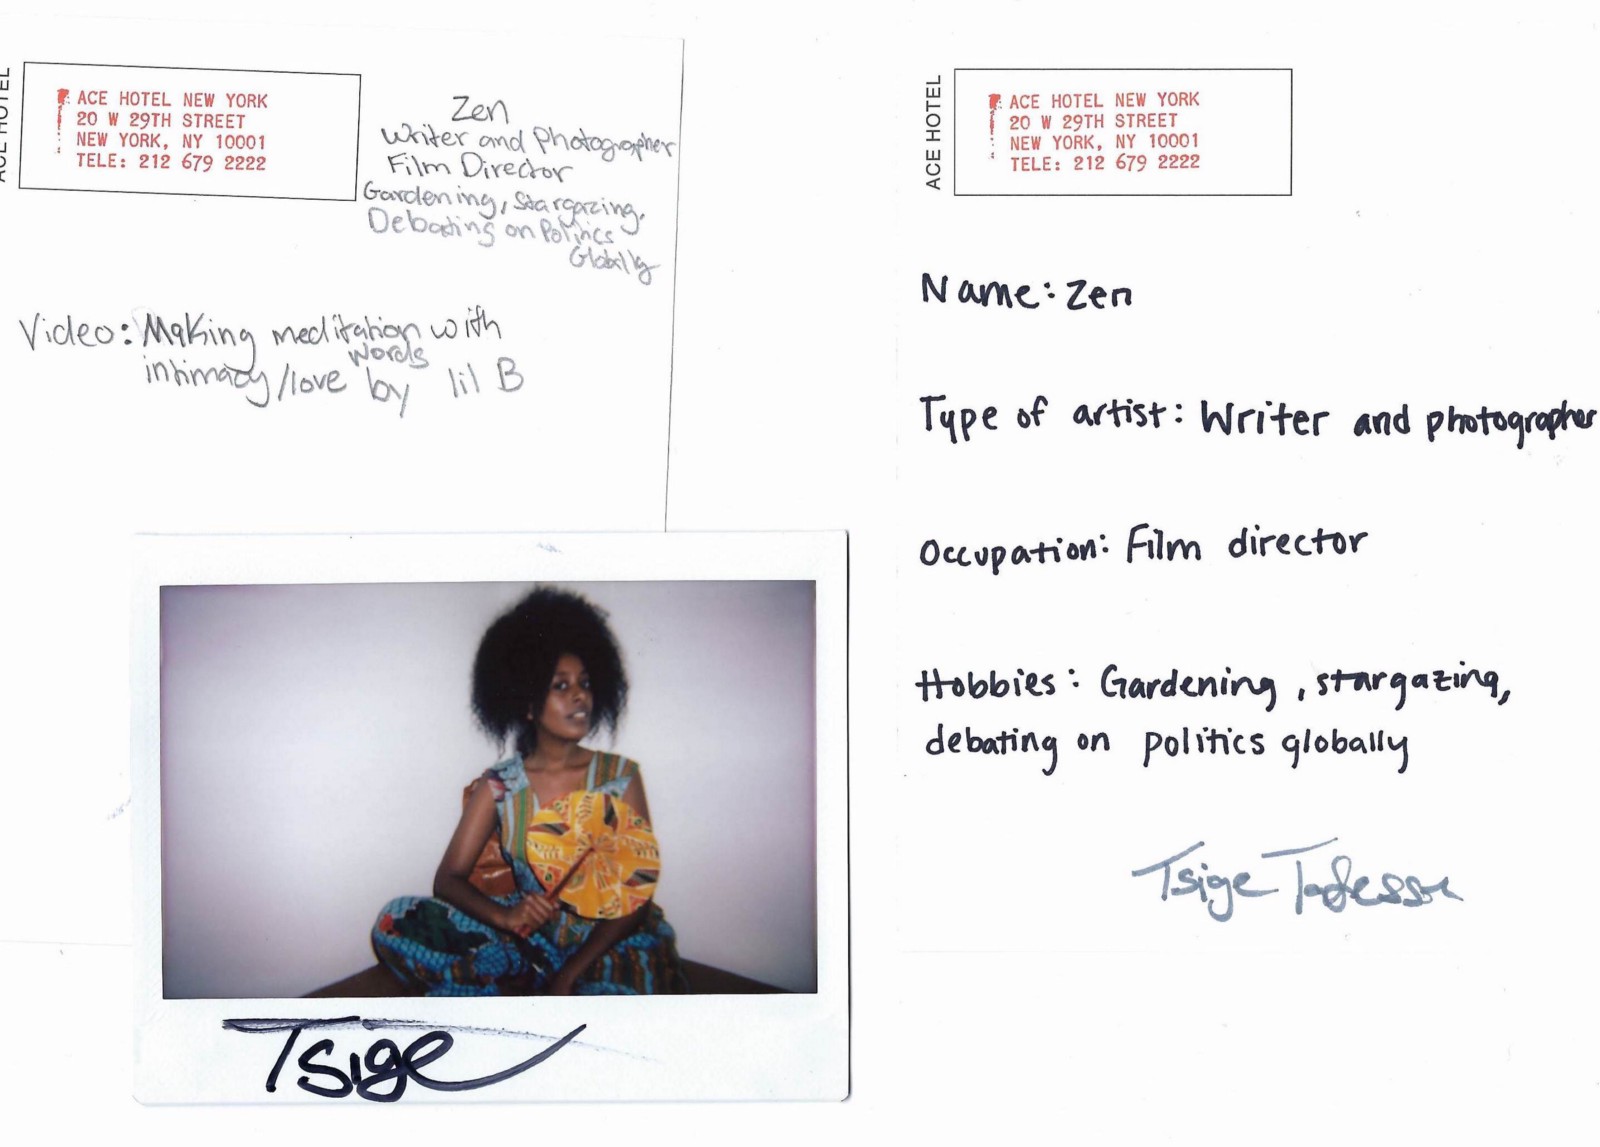 ACE HOTEL
ACE HOTEL NEW YORK
20 W 29TH STREET
NEW YORK, NY 10001
TELE: 212 679 2222
Zen
Writer and Photographer
Film Director
Gardening, Stargazing,
Debating on Politics
Globally
Video: Making meditation with
intimacy/love words by lil B
Tsige
ACE HOTEL
ACE HOTEL NEW YORK
20 W 29TH STREET
NEW YORK, NY 10001
TELE: 212 679 2222
Name: Zen
Type of artist: Writer and photographer
Occupation: Film director
Hobbies: Gardening, stargazing,
debating on politics globally
Tsige Tadesse